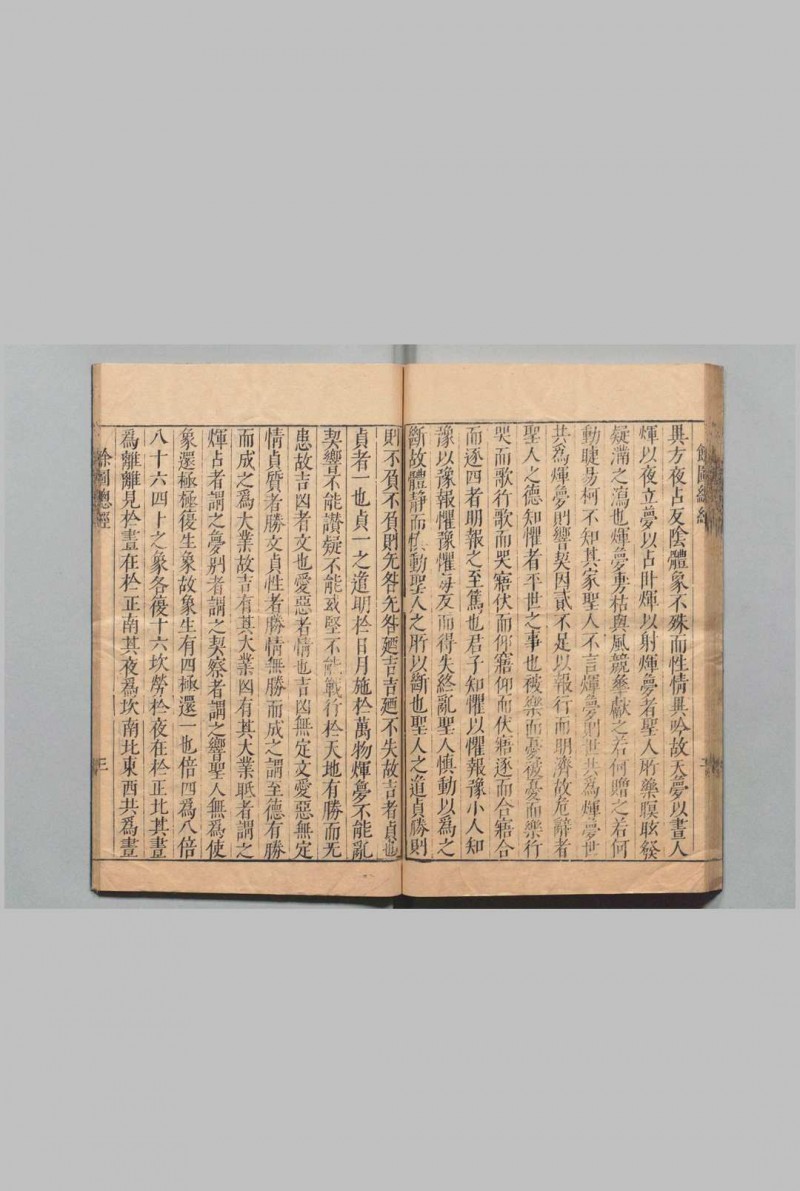 異方夜占反陰體象不殊而性情異吟故天夢以晝人
煇以夜立夢以占卅煇以射煇夢者聖人所樂瞑眩發
疑滿之瀉也煇夢專枯與風競華獻之若何贈之若何
動睫昜柯不知其家聖人不言煇夢則世共為煇夢世
共為煇夢則響契因貳不足以報行而明濟故危辭者
聖人之德知懼者平世之事也被樂而憂被憂而樂行
哭而歌行歌而哭寤伏而仰寤仰而伏寤逐而合寤合
而逐四者明報之至篤也君子知懼以懼報豫小人知
豫以豫報懼豫懼每反而得失終亂聖人慎動以為之
斷故體靜而慎動聖人之所以斷也聖人之道貞勝則
則不負不負則先咎先咎廼吉吉廼不失故吉者貞也
貞者一也貞一之道明於日月施於萬物煇夢不能亂
契響不能讚疑不能或堅不能戰行於天地有勝而无
患故吉凶者文也愛惡者情也吉凶無定文愛惡無定
情貞質者勝文貞性者勝情無勝而成之謂至德有勝
而成之為大業故吉有其大業凶有其大業眂者謂之
煇占者謂之夢別者謂之契察者謂之響聖人無為使
象還極極復生象故象生有四極還一也倍四為八倍
八十六四十之象各復十六坎勞於夜在於正北其晝
為離離見於晝在於正南其夜為坎南北東西共為晝
餘圖總經
三